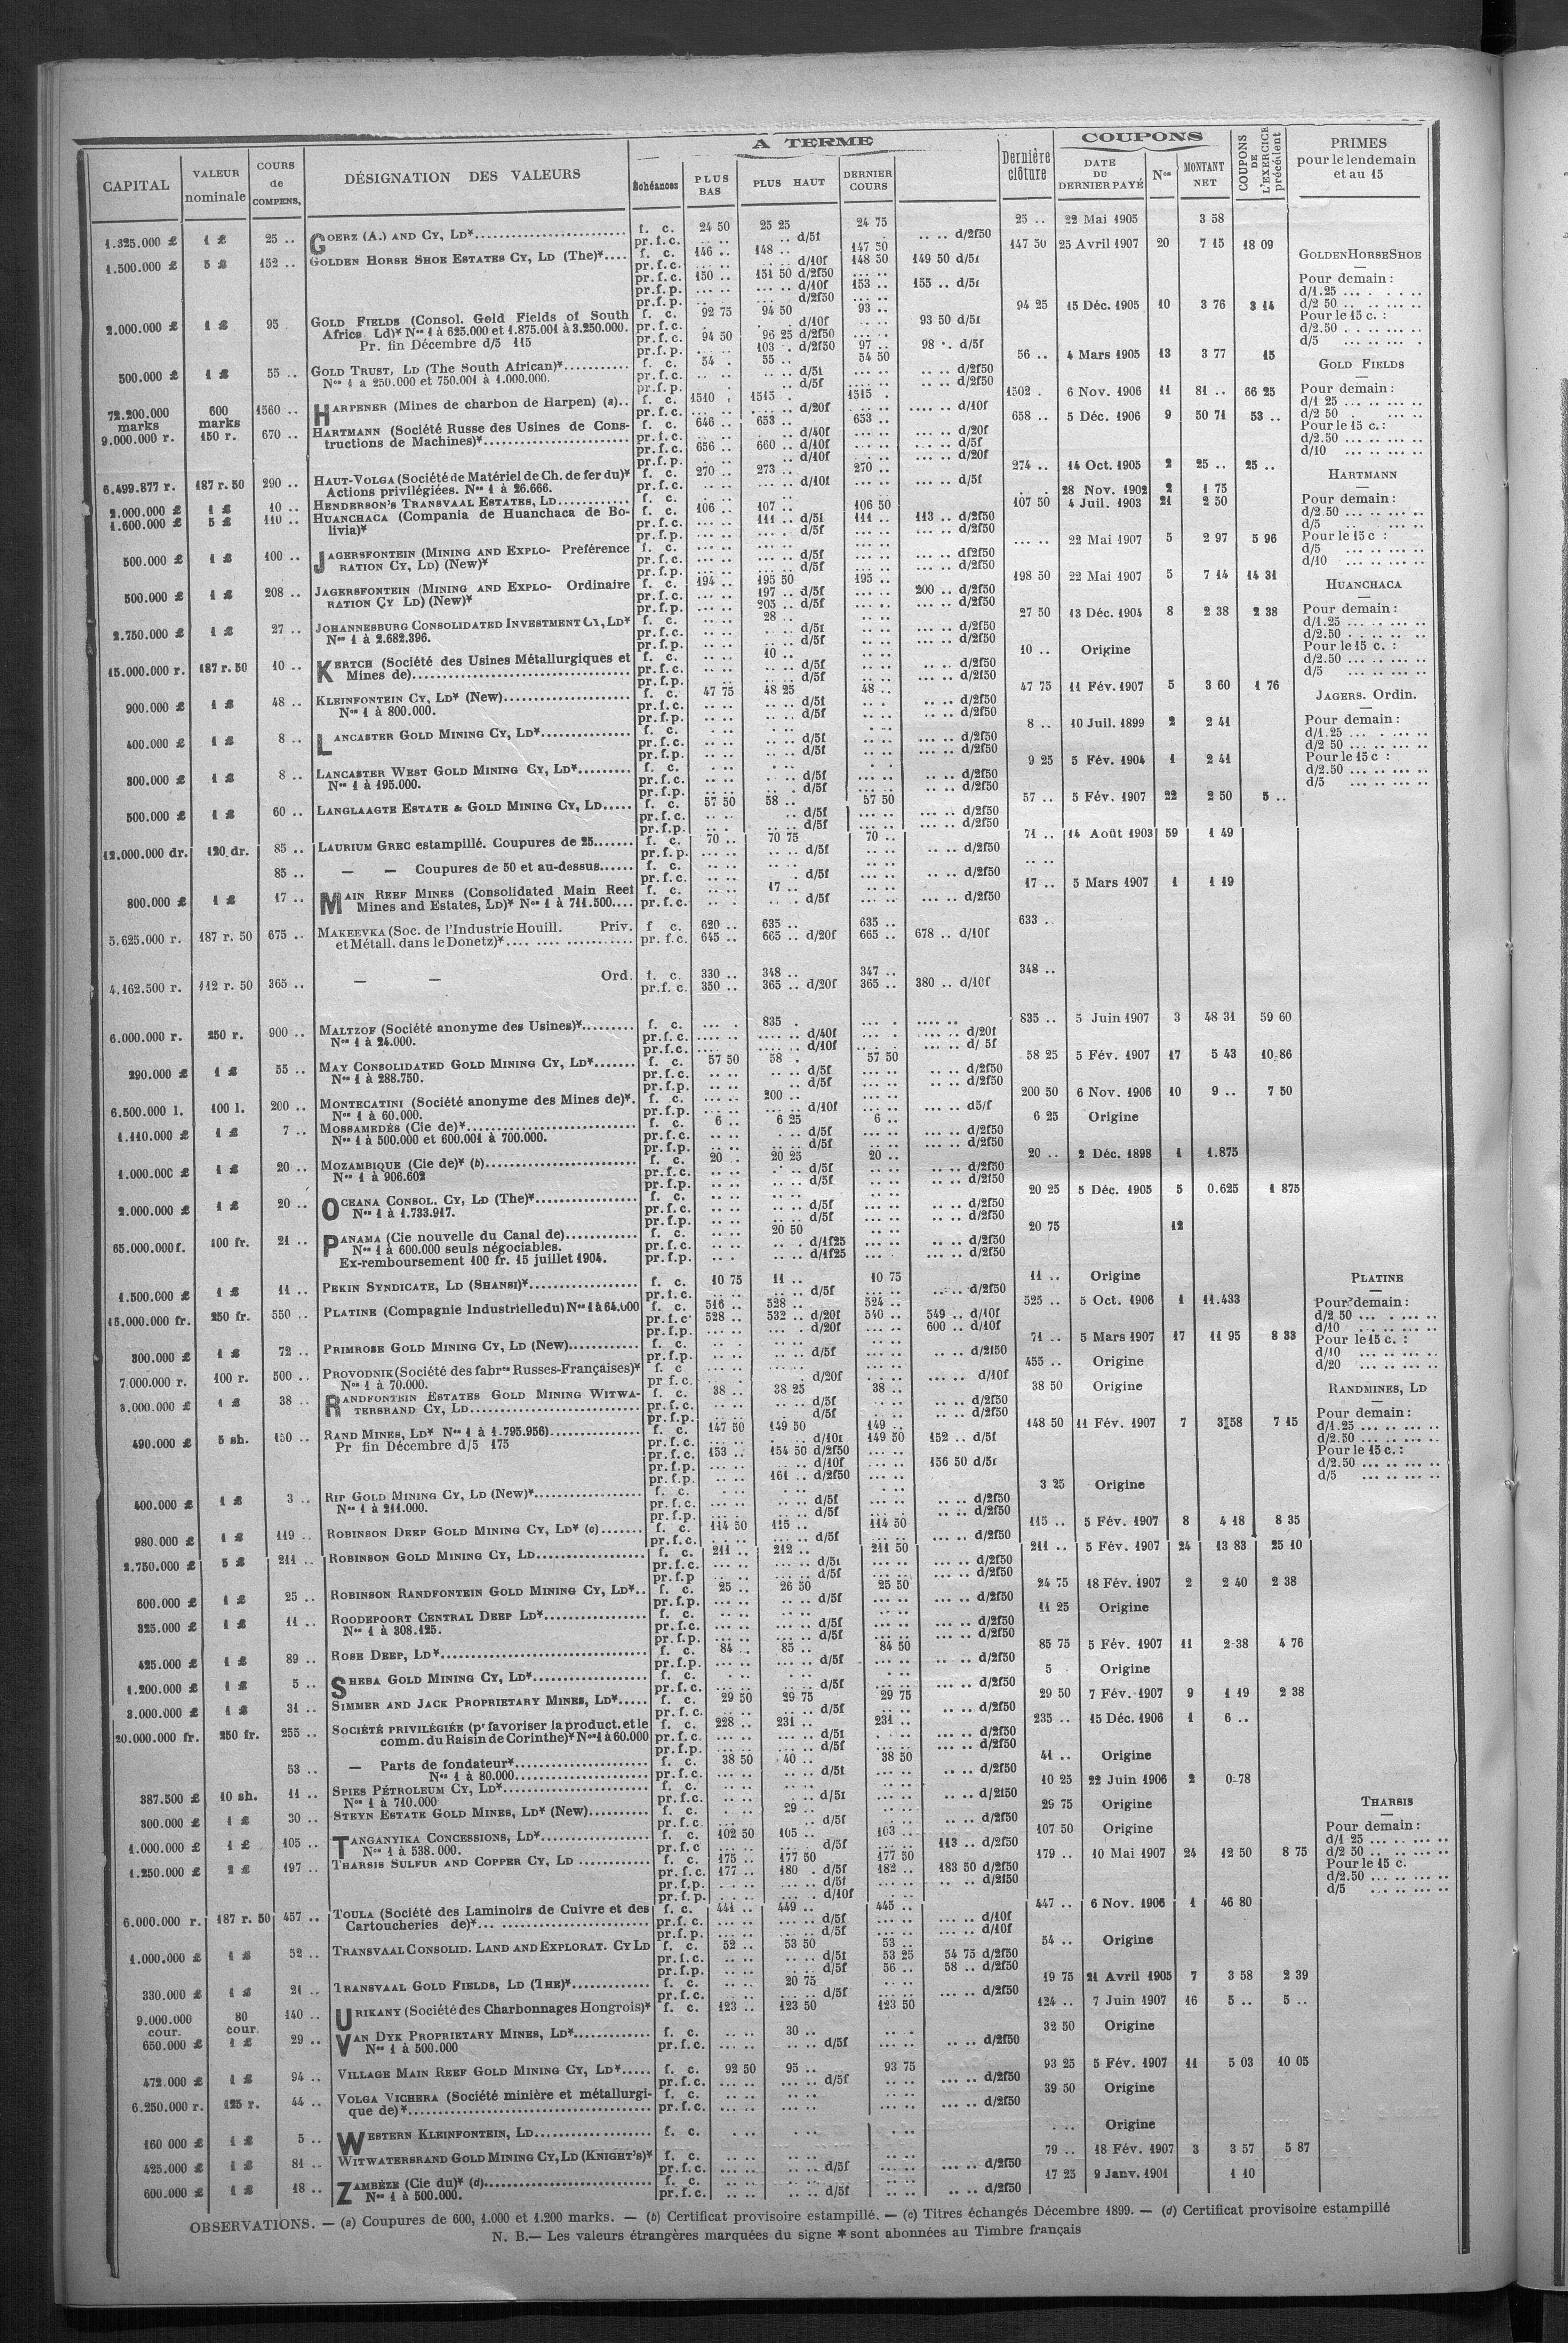 CAPITAL | VALEUR nominale | COURS de COMPENS. | DÉSIGNATION DES VALEURS | A TERME | Échéances | PLUS BAS | PLUS HAUT | DERNIER COURS | Dernière clôture | COUPONS | DATE DU DERNIER PAYÉ | Nos | MONTANT NET | COUPONS DE L'EXERCICE précédent | PRIMES pour le lendemain et au 15
1.325.000 £ 1 £ 25 .. GOERZ (A.) AND CY, LD* f. c. 24 50 25 25 24 75 25 .. 22 Mai 1905 3 58
pr. f. c. .. .. .. .. d/5f .. .. d/2f50
1.500.000 £ 5 £ 152 .. GOLDEN HORSE SHOE ESTATES CY, LD (The)* f. c. 146 .. 148 .. 147 50 147 50 25 Avril 1907 20 7 15 18 09
pr. f. c. d/10f 148 50 149 50 d/5f
pr. f. c. 150 .. 151 50 d/2f50
pr. f. p. d/10f 153 .. 155 .. d/5f
pr. f. p. d/2f50
2.000.000 £ 1 £ 95 GOLD FIELDS (Consol. Gold Fields of South f. c. 92 75 94 50 93 .. 94 25 15 Déc. 1905 10 3 76 3 14
Africa Ld)* Nos 1 à 625.000 et 1.875.001 à 3.250.000. pr. f. c. d/10f 93 50 d/5f
Pr. fin Décembre d/5 115 pr. f. c. 94 50 96 25 d/2f50
pr. f. p. 103 . d/2f50 97 .. 98 .. d/5f
500.000 £ 1 £ 55 .. GOLD TRUST, LD (The South African)* f. c. 54 . 55 .. 54 50 56 .. 4 Mars 1905 13 3 77 15
Nos 1 à 250.000 et 750.001 à 1.000.000. pr. f. c. d/5f d/2f50
pr. f. p. d/5f d/2f50
72.200.000 marks 600 marks 1560 .. HARPENER (Mines de charbon de Harpen) (a).. f. c. 1510 . 1515 . 1515 . 1502 . 6 Nov. 1906 11 81 .. 66 25
pr. f. c. d/20f d/10f
9.000.000 r. 150 r. 670 .. HARTMANN (Société Russe des Usines de Cons- f. c. 646 .. 653 .. 653 .. 658 .. 5 Déc. 1906 9 50 71 53 ..
tructions de Machines)* pr. f. c. d/40f d/20f
pr. f. c. 656 660 .. d/10f d/5f
pr. f. p. d/10f d/20f
6.499.877 r. 187 r. 50 290 .. HAUT-VOLGA (Société de Matériel de Ch. de fer du)* f. c. 270 .. 273 .. 270 .. 274 .. 14 Oct. 1905 2 25 .. 25 ..
Actions privilégiées. Nos 1 à 26.666. pr. f. c. d/10f d/5f
2.000.000 £ 1 £ 10 .. HENDERSON'S TRANSVAAL ESTATES, LD f. c. 28 Nov. 1902 2 1 75
1.600.000 £ 5 £ 110 .. HUANCHACA (Compania de Huanchaca de Bo- f. c. 106 .. 107 .. 106 50 107 50 4 Juil. 1903 21 2 50
livia)* pr. f. c. 111 .. d/5f 111 .. 113 .. d/2f50
pr. f. p. d/5f d/2f50
500.000 £ 1 £ 100 .. JAGERSFONTEIN (MINING AND EXPLO- Préférence f. c. 22 Mai 1907 5 2 97 5 96
RATION CY, LD) (New)* pr. f. c. d/5f df2f50
pr. f. p. d/5f d/2f50
500.000 £ 1 £ 208 .. JAGERSFONTEIN (MINING AND EXPLO- Ordinaire f. c. 194 .. 195 50 195 .. 198 50 22 Mai 1907 5 7 14 14 31
RATION CY LD) (New)* pr. f. c. 197 .. d/5f 200 .. d/2f50
pr. f. p. 203 .. d/5f d/2f50
2.750.000 £ 1 £ 27 .. JOHANNESBURG CONSOLIDATED INVESTMENT CY, LD* f. c. 28 .. 27 50 13 Déc. 1904 8 2 38 2 38
Nos 1 à 2.682.396. pr. f. c. d/5f d/2f50
pr. f. p. d/5f d/2f50
15.000.000 r. 187 r. 50 10 .. KERTCH (Société des Usines Métallurgiques et f. c. 10 .. 10 .. Origine
Mines de) pr. f. c. d/5f d/2f50
pr. f. p. d/5f d/2f50
900.000 £ 1 £ 48 .. KLEINFONTEIN CY, LD* (New) f. c. 47 75 48 25 48 .. 47 75 11 Fév. 1907 5 3 60 1 76
Nos 1 à 800.000. pr. f. c. d/5f d/2f50
pr. f. p. d/5f d/2f50
400.000 £ 1 £ 8 .. LANCASTER GOLD MINING CY, LD* f. c. 8 .. 10 Juil. 1899 2 2 41
pr. f. c. d/5f d/2f50
pr. f. p. d/5f d/2f50
300.000 £ 1 £ 8 .. LANCASTER WEST GOLD MINING CY, LD* f. c. 9 25 5 Fév. 1904 1 2 41
Nos 1 à 195.000. pr. f. c. d/5f d/2f50
pr. f. p. d/5f d/2f50
500.000 £ 1 £ 60 .. LANGLAAGTE ESTATE & GOLD MINING CY, LD f. c. 57 50 58 .. 57 50 57 .. 5 Fév. 1907 22 2 50 5 ..
pr. f. c. d/5f d/2f50
pr. f. p. d/5f d/2f50
12.000.000 dr. 120 dr. 85 .. LAURIUM GREC estampillé. Coupures de 25 f. c. 70 .. 70 75 70 .. 71 .. 14 Août 1903 59 1 49
pr. f. p. d/5f d/2f50
85 .. — — Coupures de 50 et au-dessus f. c.
pr. f. c. d/5f d/2f50
800.000 £ 1 £ 17 .. MAIN REEF MINES (Consolidated Main Reef f. c. 17 .. 17 .. 5 Mars 1907 1 1 19
Mines and Estates, LD)* Nos 1 à 711.500 pr. f. c. d/5f d/2f50
5.625.000 r. 187 r. 50 675 .. MAKEEVKA (Soc. de l'Industrie Houill. Priv. f. c. 620 .. 635 .. 635 .. 633 .
et Métall. dans le Donetz)* pr. f. c. 645 .. 665 .. d/20f 665 .. 678 .. d/10f
4.162.500 r. 112 r. 50 365 .. — — Ord. f. c. 330 .. 348 .. 347 .. 348 ..
pr. f. c. 350 .. 365 .. d/20f 365 .. 380 .. d/10f
6.000.000 r. 250 r. 900 .. MALTZOF (Société anonyme des Usines)* f. c. 835 . 835 .. 5 Juin 1907 3 48 31 59 60
Nos 1 à 24.000. pr. f. c. d/40f d/20f
pr. f. c. d/10f d/ 5f
290.000 £ 1 £ 55 .. MAY CONSOLIDATED GOLD MINING CY, LD* f. c. 57 50 58 . 57 50 58 25 5 Fév. 1907 17 5 43 10.86
Nos 1 à 288.750. pr. f. c. d/5f d/2f50
pr. f. p. d/5f d/2f50
6.500.000 l. 100 l. 200 .. MONTECATINI (Société anonyme des Mines de)*. f. c. 200 .. 200 50 6 Nov. 1906 10 9 .. 7 50
Nos 1 à 60.000. pr. f. p. d/10f d5/f
1.110.000 £ 1 £ 7 .. MOSSAMEDÈS (Cie de)* f. c. 6 .. 6 25 6 .. 6 25 Origine
Nos 1 à 500.000 et 600.001 à 700.000. pr. f. c. d/5f d/2f50
pr. f. p. d/5f d/2f50
1.000.000 £ 1 £ 20 .. MOZAMBIQUE (Cie de)* (b) f. c. 20 . 20 25 20 .. 20 .. 2 Déc. 1898 1 1.875
Nos 1 à 906.602 pr. f. c. d/5f d/2f50
pr. f. p. d/5f d/2f50
2.000.000 £ 1 £ 20 .. OCEANA CONSOL. CY, LD (The)* f. c. 20 25 5 Déc. 1905 5 0.625 1 875
Nos 1 à 1.733.917. pr. f. c. d/5f d/2f50
pr. f. p. d/5f d/2f50
65.000.000 f. 100 fr. 21 .. PANAMA (Cie nouvelle du Canal de) f. c. 20 50 20 75 12
Nos 1 à 600.000 seuls négociables. pr. f. c. d/1f25 d/2f50
Ex-remboursement 100 fr. 15 juillet 1904. pr. f. p. d/1f25 d/2f50
1.500.000 £ 1 £ 11 .. PEKIN SYNDICATE, LD (SHANSI)* f. c. 10 75 11 .. 10 75 11 .. Origine
pr. f. c. d/5f d/2f50
16.000.000 fr. 250 fr. 550 .. PLATINE (Compagnie Industrielle du) Nos 1 à 64.000 f. c. 516 .. 528 .. 524 .. 525 .. 5 Oct. 1906 1 11.433
pr. f. c. 528 .. 532 .. d/20f 540 .. 549 .. d/10f
pr. f. p. d/20f 600 .. d/10f
300.000 £ 1 £ 72 .. PRIMROSE GOLD MINING CY, LD (New) f. c. 71 .. 5 Mars 1907 17 11 95 8 33
pr. f. p. d/5f d/2f50
7.000.000 r. 100 r. 500 .. PROVODNIK (Société des fabres Russes-Françaises)* f. c. 455 .. Origine
Nos 1 à 70.000. pr. f. c. d/20f d/10f
3.000.000 £ 1 £ 38 .. RANDFONTEIN ESTATES GOLD MINING WITWA- f. c. 38 .. 38 25 38 .. 38 50 Origine
TERSRAND CY, LD pr. f. c. d/5f d/2f50
pr. f. p. d/5f d/2f50
490.000 £ 5 sh. 150 .. RAND MINES, LD* Nos 1 à 1.795.956) f. c. 147 50 149 50 149 .. 148 50 11 Fév. 1907 7 3 58 7 15
Pr fin Décembre d/5 175 pr. f. c. d/10f 149 50 152 .. d/5f
pr. f. c. 153 .. 154 50 d/2f50
pr. f. p. d/10f 156 50 d/5f
pr. f. p. 161 .. d/2f50
400.000 £ 1 £ 3 .. RIP GOLD MINING CY, LD (New)* f. c. 3 25 Origine
Nos 1 à 211.000. pr. f. c. d/5f d/2f50
pr. f. p. d/5f d/2f50
980.000 £ 1 £ 119 .. ROBINSON DEEP GOLD MINING CY, LD* (c) f. c. 114 50 115 .. 114 50 115 .. 5 Fév. 1907 8 4 18 8 35
pr. f. c. d/5f d/2f50
2.750.000 £ 5 £ 211 .. ROBINSON GOLD MINING CY, LD f. c. 211 .. 212 .. 211 50 211 .. 5 Fév. 1907 24 13 83 25 10
pr. f. c. d/5f d/2f50
pr. f. p d/5f d/2f50
600.000 £ 1 £ 25 .. ROBINSON RANDFONTEIN GOLD MINING CY, LD* f. c. 25 .. 26 50 25 50 24 75 18 Fév. 1907 2 2 40 2 38
pr. f. p. d/5f d/2f50
325.000 £ 1 £ 11 .. ROODEPOORT CENTRAL DEEP LD* f. c. 11 25 Origine
Nos 1 à 308.125. pr. f. c. d/5f d/2f50
pr. f. p. d/5f d/2f50
425.000 £ 1 £ 89 .. ROSE DEEP, LD* f. c. 84 .. 85 .. 84 50 85 75 5 Fév. 1907 11 2 38 4 76
pr. f. p. d/5f d/2f50
1.200.000 £ 1 £ 5 .. SHEBA GOLD MINING CY, LD* f. c. 5 . Origine
pr. f. c. d/5f d/2f50
3.000.000 £ 1 £ 31 .. SIMMER AND JACK PROPRIETARY MINES, LD* f. c. 29 50 29 75 29 75 29 50 7 Fév. 1907 9 1 19 2 38
pr. f. c. d/5f d/2f50
20.000.000 fr. 250 fr. 255 .. SOCIÉTÉ PRIVILÉGIÉE (pr favoriser la product. et le f. c. 228 .. 231 .. 231 .. 235 .. 15 Déc. 1906 1 6 ..
comm. du Raisin de Corinthe)* Nos 1 à 60.000 pr. f. c. d/5f d/2f50
pr. f. p. d/5f d/2f50
53 .. — Parts de fondateur* f. c. 38 50 40 .. 38 50 41 .. Origine
Nos 1 à 80.000 pr. f. c. d/5f d/2f50
387.500 £ 10 sh. 11 .. SPIES PÉTROLEUM CY, LD* f. c. 10 25 22 Juin 1906 2 0.78
Nos 1 à 710.000 pr. f. c. d/5f d/2f50
300.000 £ 1 £ 30 .. STEYN ESTATE GOLD MINES, LD* (New) f. c. 29 .. 29 75 Origine
pr. f. c. d/5f d/2f50
1.000.000 £ 1 £ 105 .. TANGANYIKA CONCESSIONS, LD* f. c. 102 50 105 .. 103 .. 107 50 Origine
Nos 1 à 538.000. pr. f. c d/5f 113 .. d/2f50
1.250.000 £ 2 £ 197 .. THARSIS SULFUR AND COPPER CY, LD f. c. 175 .. 177 50 177 50 179 .. 10 Mai 1907 24 12 50 8 75
pr. f. c. 177 .. 180 . d/5f 182 .. 183 50 d/2f50
pr. f. p. d/5f d/2f50
pr. f. p. d/10f
6.000.000 r. 187 r. 50 457 .. TOULA (Société des Laminoirs de Cuivre et des f. c. 441 .. 449 .. 445 .. 447 .. 6 Nov. 1906 1 46 80
Cartoucheries de)* pr. f. c. d/5f d/10f
pr. f. p. d/5f d/10f
1.000.000 £ 1 £ 52 .. TRANSVAAL CONSOLID. LAND AND EXPLORAT. CY LD f. c. 52 .. 53 50 53 .. 54 .. Origine
pr. f. c. d/5f 53 25 54 75 d/2f50
pr. f. p. d/5f 56 .. 58 .. d/2f50
330.000 £ 1 £ 21 .. TRANSVAAL GOLD FIELDS, LD (THE)* f. c. 20 75 19 75 21 Avril 1905 7 3 58 2 39
pr. f. c. d/5f d/2f50
9.000.000 cour. 80 cour. 140 .. URIKANY (Société des Charbonnages Hongrois)* f. c. 123 .. 123 50 123 50 124 .. 7 Juin 1907 16 5 .. 5 ..
650.000 £ 1 £ 29 .. VAN DYK PROPRIETARY MINES, LD* f. c. 30 .. 32 50 Origine
Nos 1 à 500.000 pr. f. c. d/5f d/2f50
472.000 £ 1 £ 94 .. VILLAGE MAIN REEF GOLD MINING CY, LD* f. c. 92 50 95 .. 93 75 93 25 5 Fév. 1907 11 5 03 10 05
pr. f. c. d/5f d/2f50
6.250.000 r. 125 r. 44 .. VOLGA VICHERA (Société minière et métallurgi- f. c. 39 50 Origine
que de)* pr. f. c. d/2f50
160 000 £ 1 £ 5 .. WESTERN KLEINFONTEIN, LD f. c. Origine
425.000 £ 1 £ 81 .. WITWATERSRAND GOLD MINING CY, LD (KNIGHT'S)* f. c. 79 .. 18 Fév. 1907 3 3 57 5 87
pr. f. c. d/5f d/2f50
600.000 £ 1 £ 18 .. ZAMBÈZE (Cie du)* (d) f. c. 17 25 9 Janv. 1901 1 10
Nos 1 à 500.000. pr. f. c. d/5f d/2f50
GOLDEN HORSE SHOE
Pour demain :
d/1.25
d/2 50
Pour le 15 c. :
d/2.50
d/5
GOLD FIELDS
Pour demain :
d/1 25
d/2 50
Pour le 15 c. :
d/2.50
d/10
HARTMANN
Pour demain :
d/2.50
d/5
Pour le 15 c :
d/5
d/10
HUANCHACA
Pour demain :
d/1.25
d/2.50
Pour le 15 c. :
d/2.50
d/5
JAGERS. Ordin.
Pour demain :
d/1.25
d/2 50
Pour le 15 c :
d/2.50
d/5
PLATINE
Pour demain :
d/2 50
d/10
Pour le 15 c. :
d/10
d/20
RANDMINES, LD
Pour demain :
d/1.25
d/2.50
Pour le 15 c. :
d/2.50
d/5
THARSIS
Pour demain :
d/1 25
d/2 50
Pour le 15 c.
d/2.50
d/5
OBSERVATIONS. — (a) Coupures de 600, 1.000 et 1.200 marks. — (b) Certificat provisoire estampillé. — (c) Titres échangés Décembre 1899. — (d) Certificat provisoire estampillé
N. B.— Les valeurs étrangères marquées du signe * sont abonnées au Timbre français